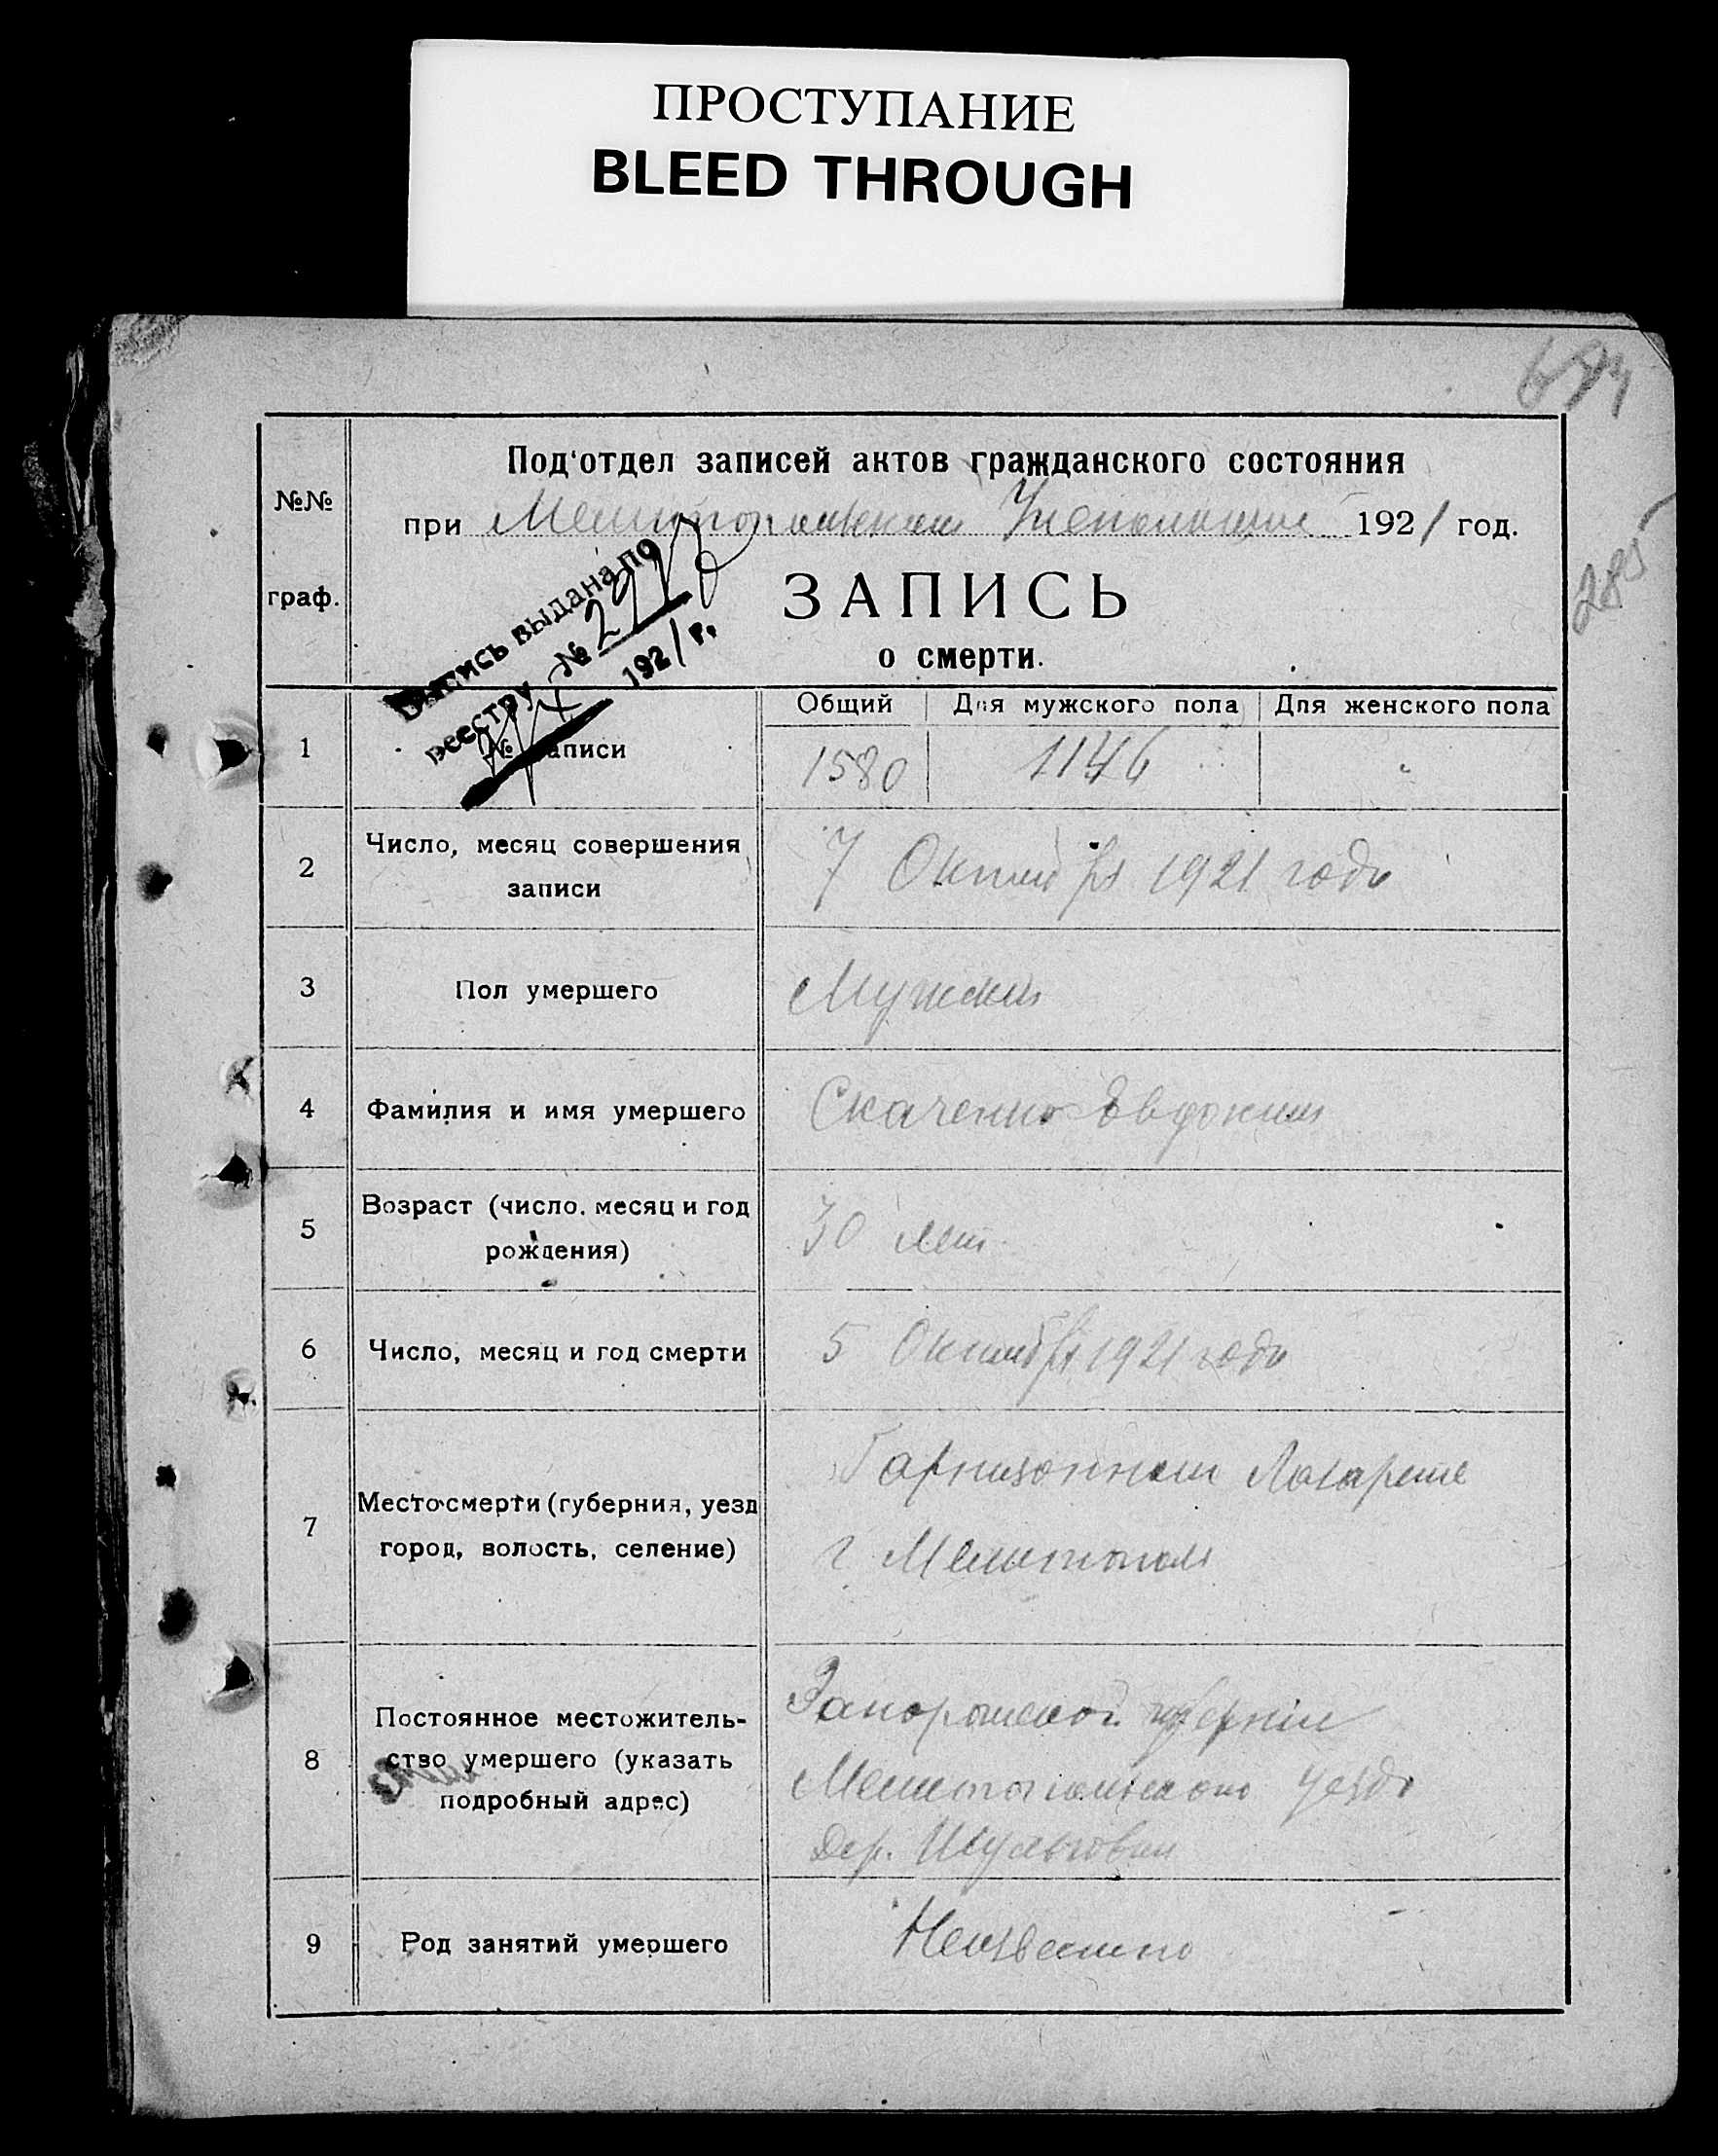 ПРОСТУПАНИЕ
BLEED THROUGH
285
Под'отдел записей актов гражданского состояния
№№
при Мелитопольском Уисполкоме 1921 год.
граф.
ЗАПИСЬ
о смерти.
Выпись выдана по
реестру №
1921 г.
Общий Для мужского пола Для женского пола
1 № записи 1580 1146 "
2 Число, месяц совершения
записи
7 Октября 1921 года
3 Пол умершего Мужской
4 Фамилия и имя умершего Скаченко Евдоким
5 Возраст (число, месяц и год
рождения)
30 лет
6 Число, месяц и год смерти 5 Октября 1921 года
7 Место смерти (губерния, уезд
город, волость, селение)
Гарнизонном Лазарете
г. Мелитополь
8 Постоянное местожитель-
ство умершего (указать
подробный адрес)
Запорожской губернии
Мелитопольского уезда
Дер.
9 Род занятий умершего Неизвестно